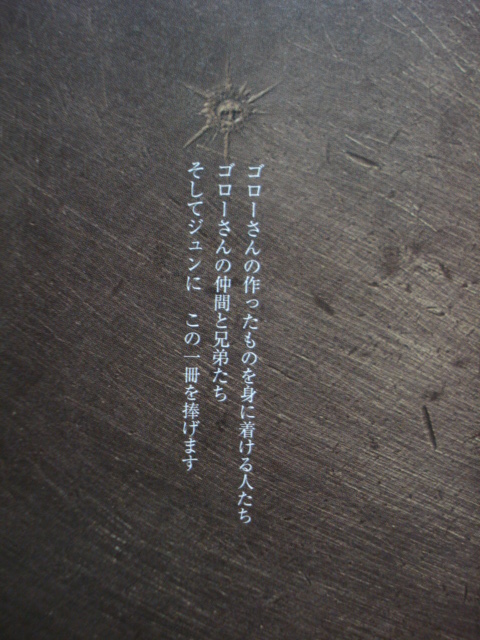 ゴローさんの作ったものを身に着ける人たち
ゴローさんの仲間と兄弟たち
そしてジュンに この一冊を捧げます